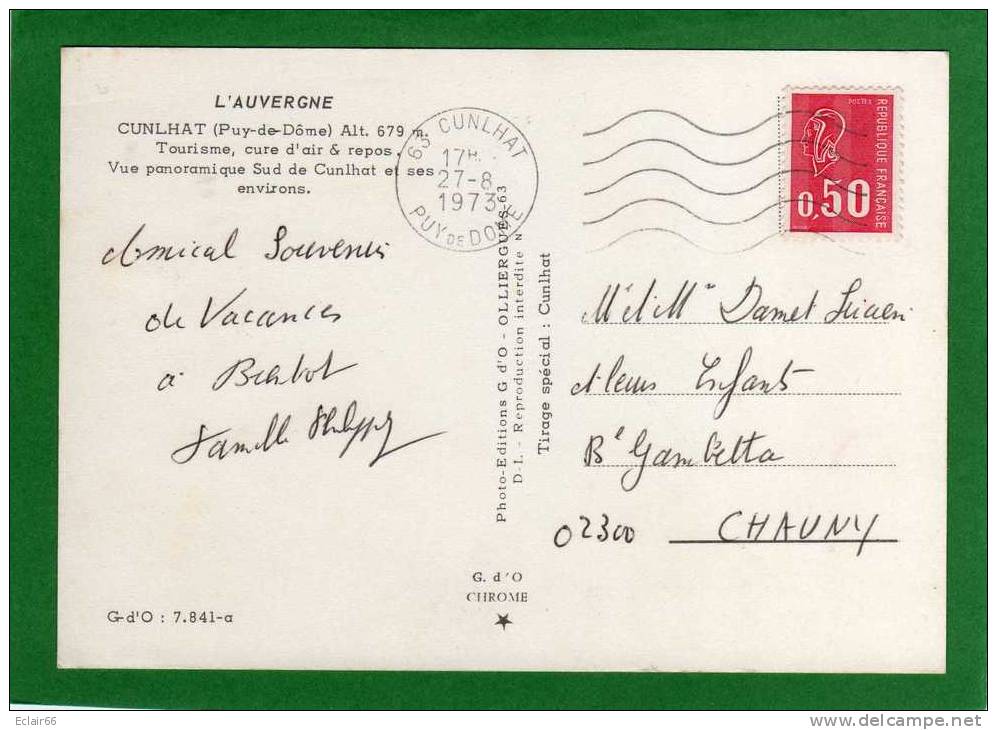 L'AUVERGNE
CUNLHAT (Puy-de-Dôme) Alt. 679 m.
Tourisme, cure d'air & repos.
Vue panoramique Sud de Cunlhat et ses
environs.
63 CUNLHAT
17H.
27-8
1973
PUY DE DOME
POSTES
REPUBLIQUE FRANÇAISE
0,50
Amical Souvenir
de Vacances
à
Famille Philippe
Photo-Editions G d'O - OLLIERGUES-63
D-I. - Reproduction interdite N
Tirage spécial : Cunlhat
M et Mme Damet Lucien
et leurs Enfants
Bd Gambetta
02300 CHAUNY
G. d'O
CHROME
G-d'O : 7.841-a
Eclair66
delcampe.net